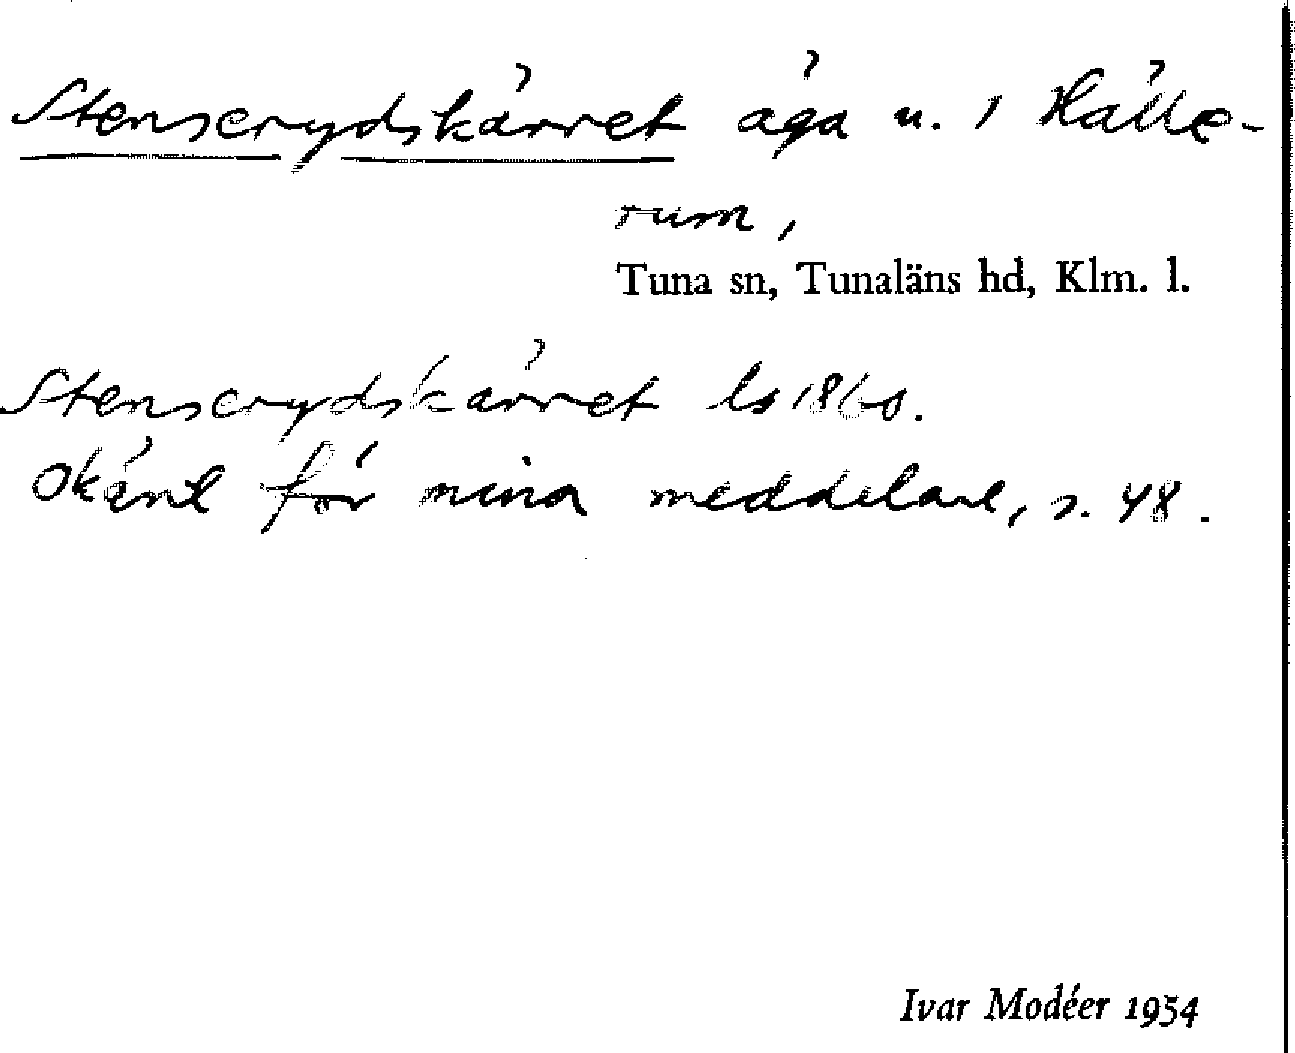 Stenserydskärret äga u. 1 Hälle-
rum,
Tuna sn, Tunaläns hd, Klm. l.
Stenserydskärret ls 1860.
Okänt för mina meddelare, s. 48.
Ivar Modéer 1954